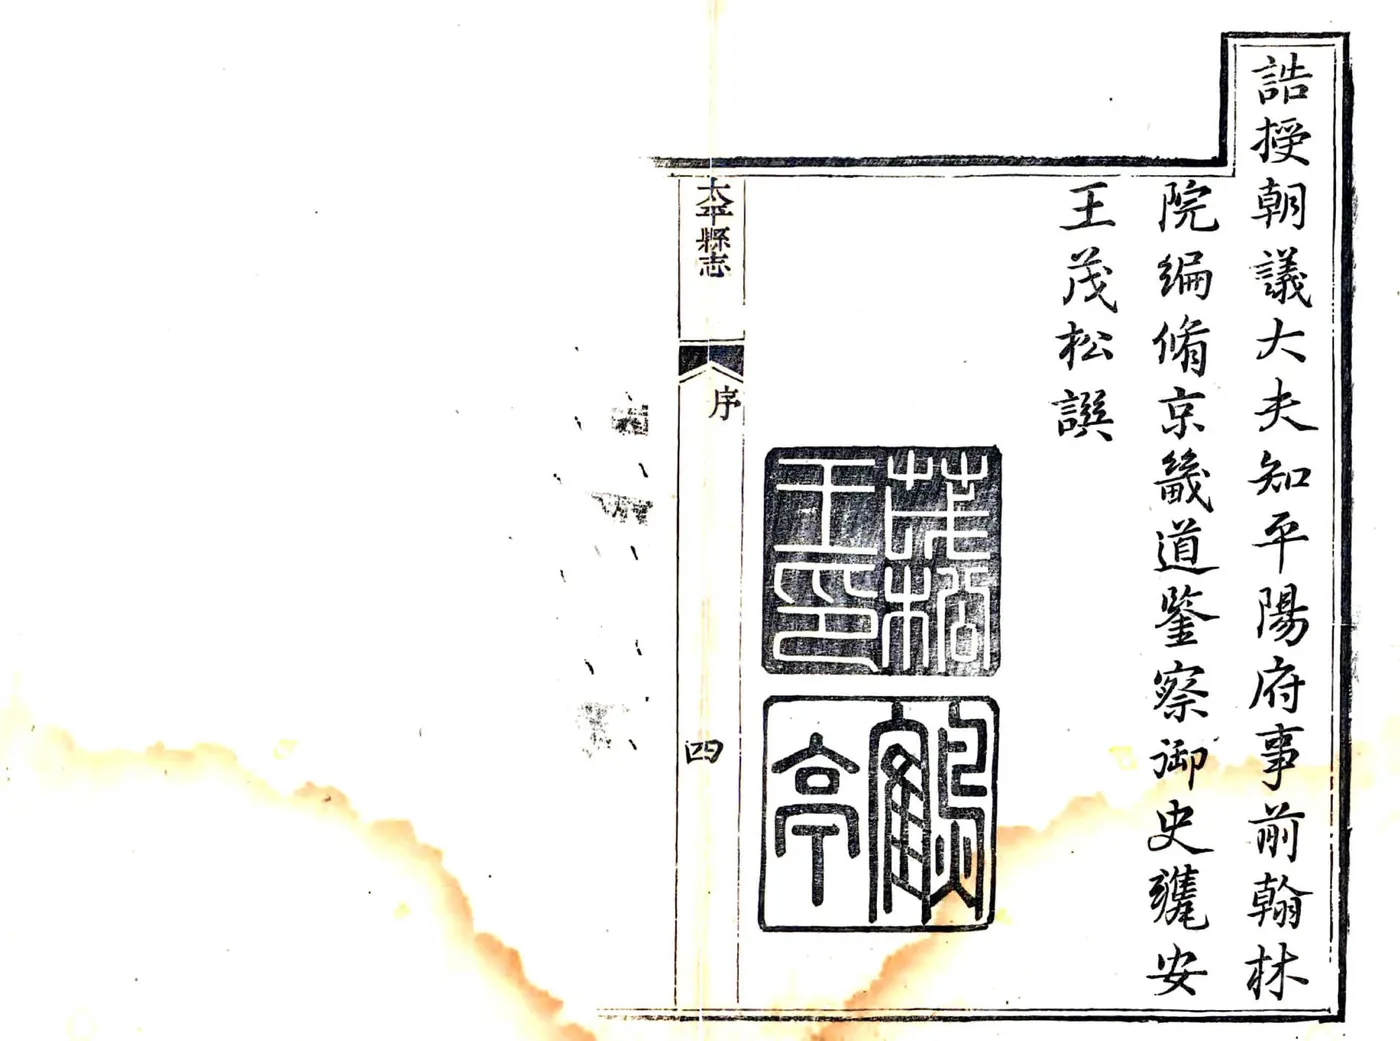 誥授朝議大夫知平陽府事前翰林
院編脩京畿道鑒察御史安
王茂松譔
茂松
王印
鶴亭
太平縣志
序
四